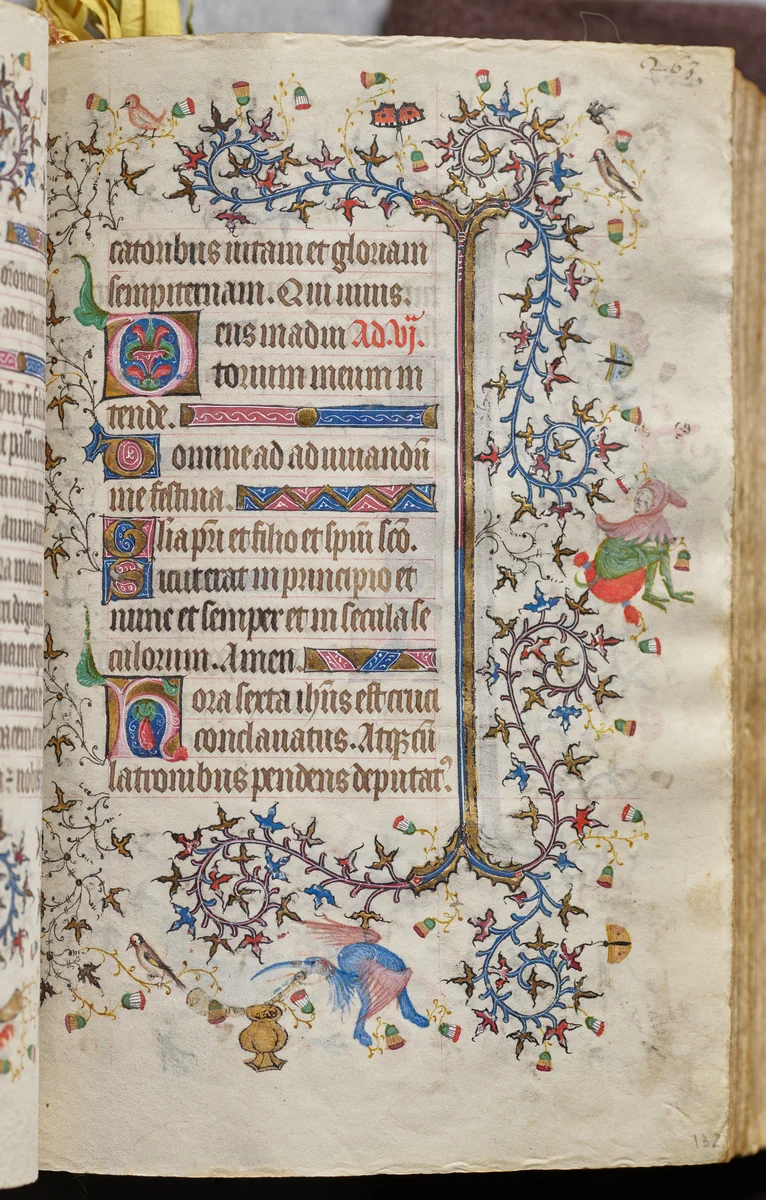 263
catoribus vitam et gloriam
sempiternam. Qui vivis.
Deus in adiu Ad. vj.
torium meum in
tende.
Domine ad adiuvandū
me festina.
Glīa pr̄i et filio et spiri̅ sc̄o.
Sicut erat in principio et
nunc et semper et in secula se
culorum. Amen.
Hora sexta ihūs est cruci
conclavatus. Atqȝ cū
latronibus pendens deputatꝰ.
132